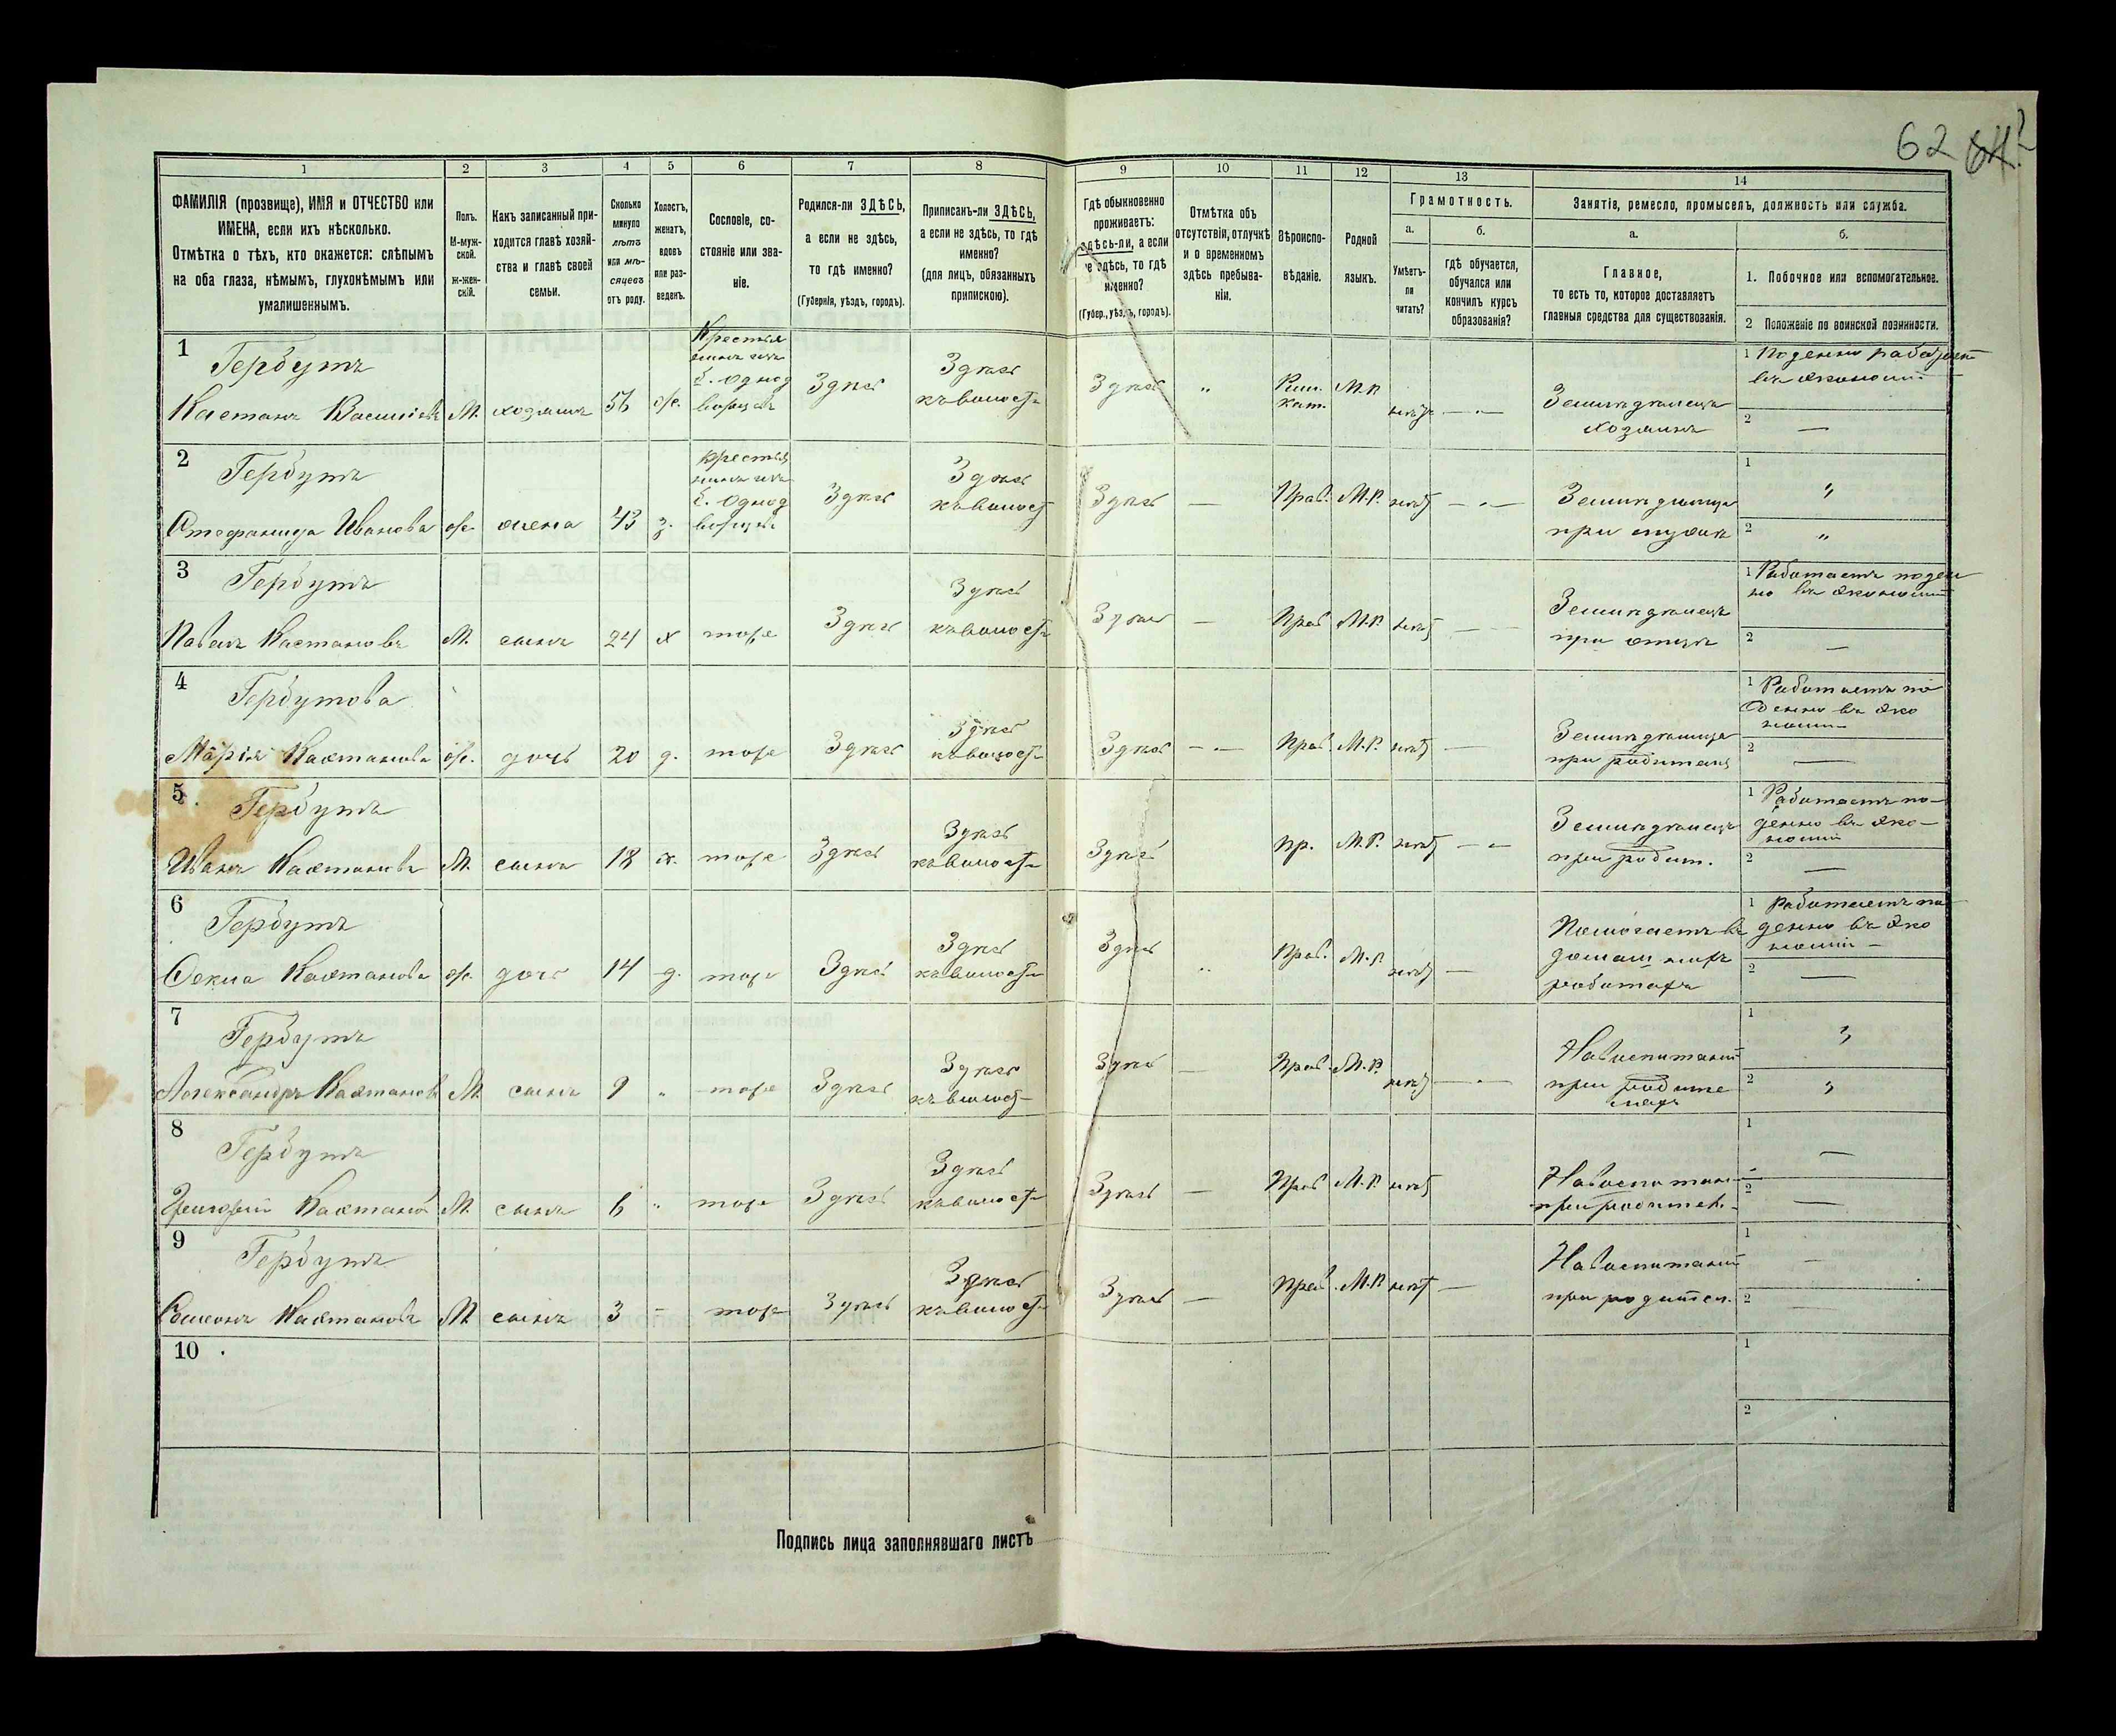 62
1
2
3
4
5
6
7
8
9
10
11
12
13
14
ФАМИЛІЯ (прозвище), ИМЯ и ОТЧЕСТВО или
ИМЕНА, если ихъ нѣсколько.
Отмѣтка о тѣхъ, кто окажется: слѣпымъ
на оба глаза, нѣмымъ, глухонѣмымъ или
умалишеннымъ.
Полъ.
М-муж-
ской.
Ж-жен-
скій.
Какъ записанный при-
ходится главѣ хозяй-
ства и главѣ своей
семьи.
Сколько
минуло
лѣтъ
или мѣ-
сяцевъ
отъ роду.
Холостъ,
женатъ,
вдовъ
или раз-
веденъ.
Сословіе, со-
стояніе или зва-
ніе.
Родился-ли ЗДѢСЬ,
а если не здѣсь,
то гдѣ именно?
(Губернія, уѣздъ, городъ).
Приписанъ-ли ЗДѢСЬ,
а если не здѣсь, то гдѣ
именно?
(для лицъ, обязанныхъ
припискою).
Гдѣ обыкновенно
проживаетъ:
здѣсь-ли, а если
не здѣсь, то гдѣ
именно?
(Губер., уѣздъ, городъ).
Отмѣтка объ
отсутствіи, отлучкѣ
и о временномъ
здѣсь пребыва-
ніи.
Вѣроиспо-
вѣданіе.
Родной
языкъ.
Грамотность.
а.
Умѣетъ-
ли
читать?
б.
гдѣ обучается,
обучался или
кончилъ курсъ
образованія?
Занятіе, ремесло, промыселъ, должность или служба.
а.
Главное,
то есть то, которое доставляетъ
главныя средства для существованія.
б.
1. Побочное или вспомогательное.
2 Положеніе по воинской повинности.
1
Гербутъ
Кастанъ
М.
хозяинъ
56
ж.
Крестья
нинъ изъ
б. однод
ворцевъ
Здѣсь
Здѣсь
къ волост
Здѣсь
"
Рим.
кат.
М.Р.
нѣт
— " —
Земледѣлецъ
хозяинъ
1 Поденно
въ эконом
2
—
2
Гербутъ
Стефанида Иванова
ж.
жена
43
з.
б. однод
Здѣсь
Здѣсь
къ волост
Здѣсь
—
Прав.
М.Р.
нѣт
— " —
Земледѣлица
при мужѣ
1
"
2
"
3
Гербутъ
Павелъ Кастановъ
М.
сынъ
24
х
тоже
Здѣсь
Здѣсь
къ волост
Здѣсь
—
Прав
М.Р.
нѣт
—
Земледѣлецъ
при отцѣ
1 Работаетъ поден
но въ экономіи
2
—
4
Гербутова
Марія Кастанова
ж.
дочь
20
д.
тоже
Здѣсь
Здѣсь
къ волост
Здѣсь
— " —
Прав.
М.Р.
нѣт
—
Земледѣлица
при родител
1 Работаетъ по
денно въ эко
номіи
2
—
5
Гербутъ
Иванъ Кастановъ
М.
сынъ
18
х.
тоже
Здѣсь
Здѣсь
къ волост
Здѣсь
Пр.
М.Р.
нѣт
— " —
Земледѣлецъ
при родит.
1 Работаетъ по-
денно въ эко-
номіи
2
—
6
Гербутъ
Кастанова
ж.
дочь
14
д.
тоже
Здѣсь
Здѣсь
къ волост
Здѣсь
"
Прав.
М.Р.
нѣт
—
Помогаетъ въ
домашнихъ
работахъ
1 Работаетъ по
денно въ эко
номіи
2
—
7
Гербутъ
Александръ Кастановъ
М.
сынъ
9
"
тоже
Здѣсь
Здѣсь
къ волост
Здѣсь
—
Прав.
М.Р.
нѣт
— " —
На воспитаніи
при родите
ляхъ
1
"
2
"
8
Гербутъ
Григорій Кастанов
М.
сынъ
6
"
тоже
Здѣсь
Здѣсь
къ волост
Здѣсь
—
Прав
М.Р.
нѣт
На воспитаніи
при родител.
1
—
2
—
9
Гербутъ
Семенъ Кастановъ
М.
сынъ
3
-
тоже
Здѣсь
Здѣсь
къ волост
Здѣсь
—
Прав.
М.Р.
нѣт
—
На воспитаніи
при родител.
1
—
2
—
10
1
2
Подпись лица заполнявшаго листъ